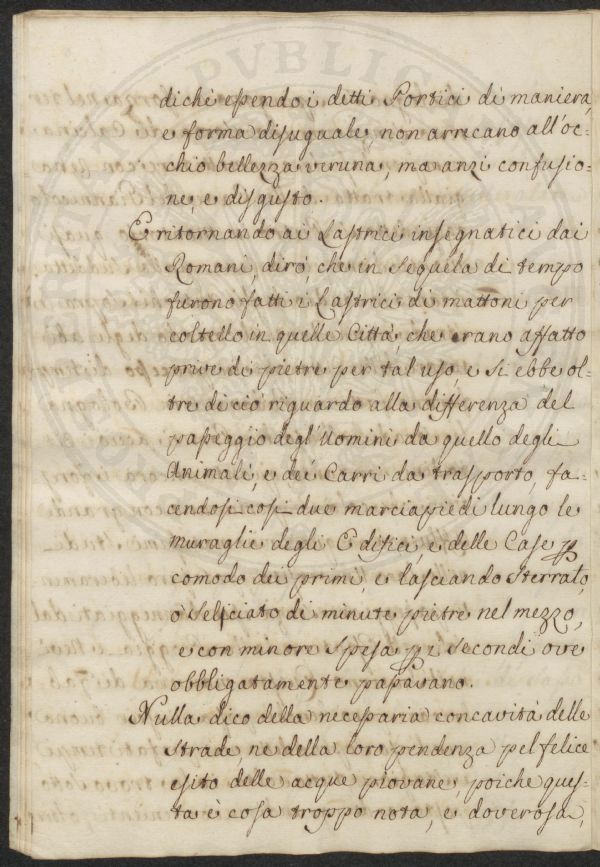 dichè essendo i detti Portici di maniera,
e forma disuguale, non arrecano all'oc-
chio bellezza veruna, ma anzi confusio-
ne, e disgusto.
E ritornando ai Lastrici insegnatici dai
Romani dirò, che in seguela di tempo
furono fatti i Lastrici di mattoni per
coltello in quelle Città, che erano affatto
prive di pietre per tal uso, e si ebbe ol-
tre di ciò riguardo alla differenza del
passeggio degl'Uomini da quello degli
Animali, e dei Carri da trasporto, fa-
cendosi così due marciapiedi lungo le
muraglie degli Edifici e delle Case p
comodo dei primi, e lasciando sterrato,
o selciato di minute pietre nel mezzo,
e con minore spesa p i secondi ove
obbligatamente passavano.
Nulla dico della necessaria concavità delle
strade, ne della loro pendenza pel felice
esito delle acque piovane, poichè ques-
ta è cosa troppo nota, e doverosa,